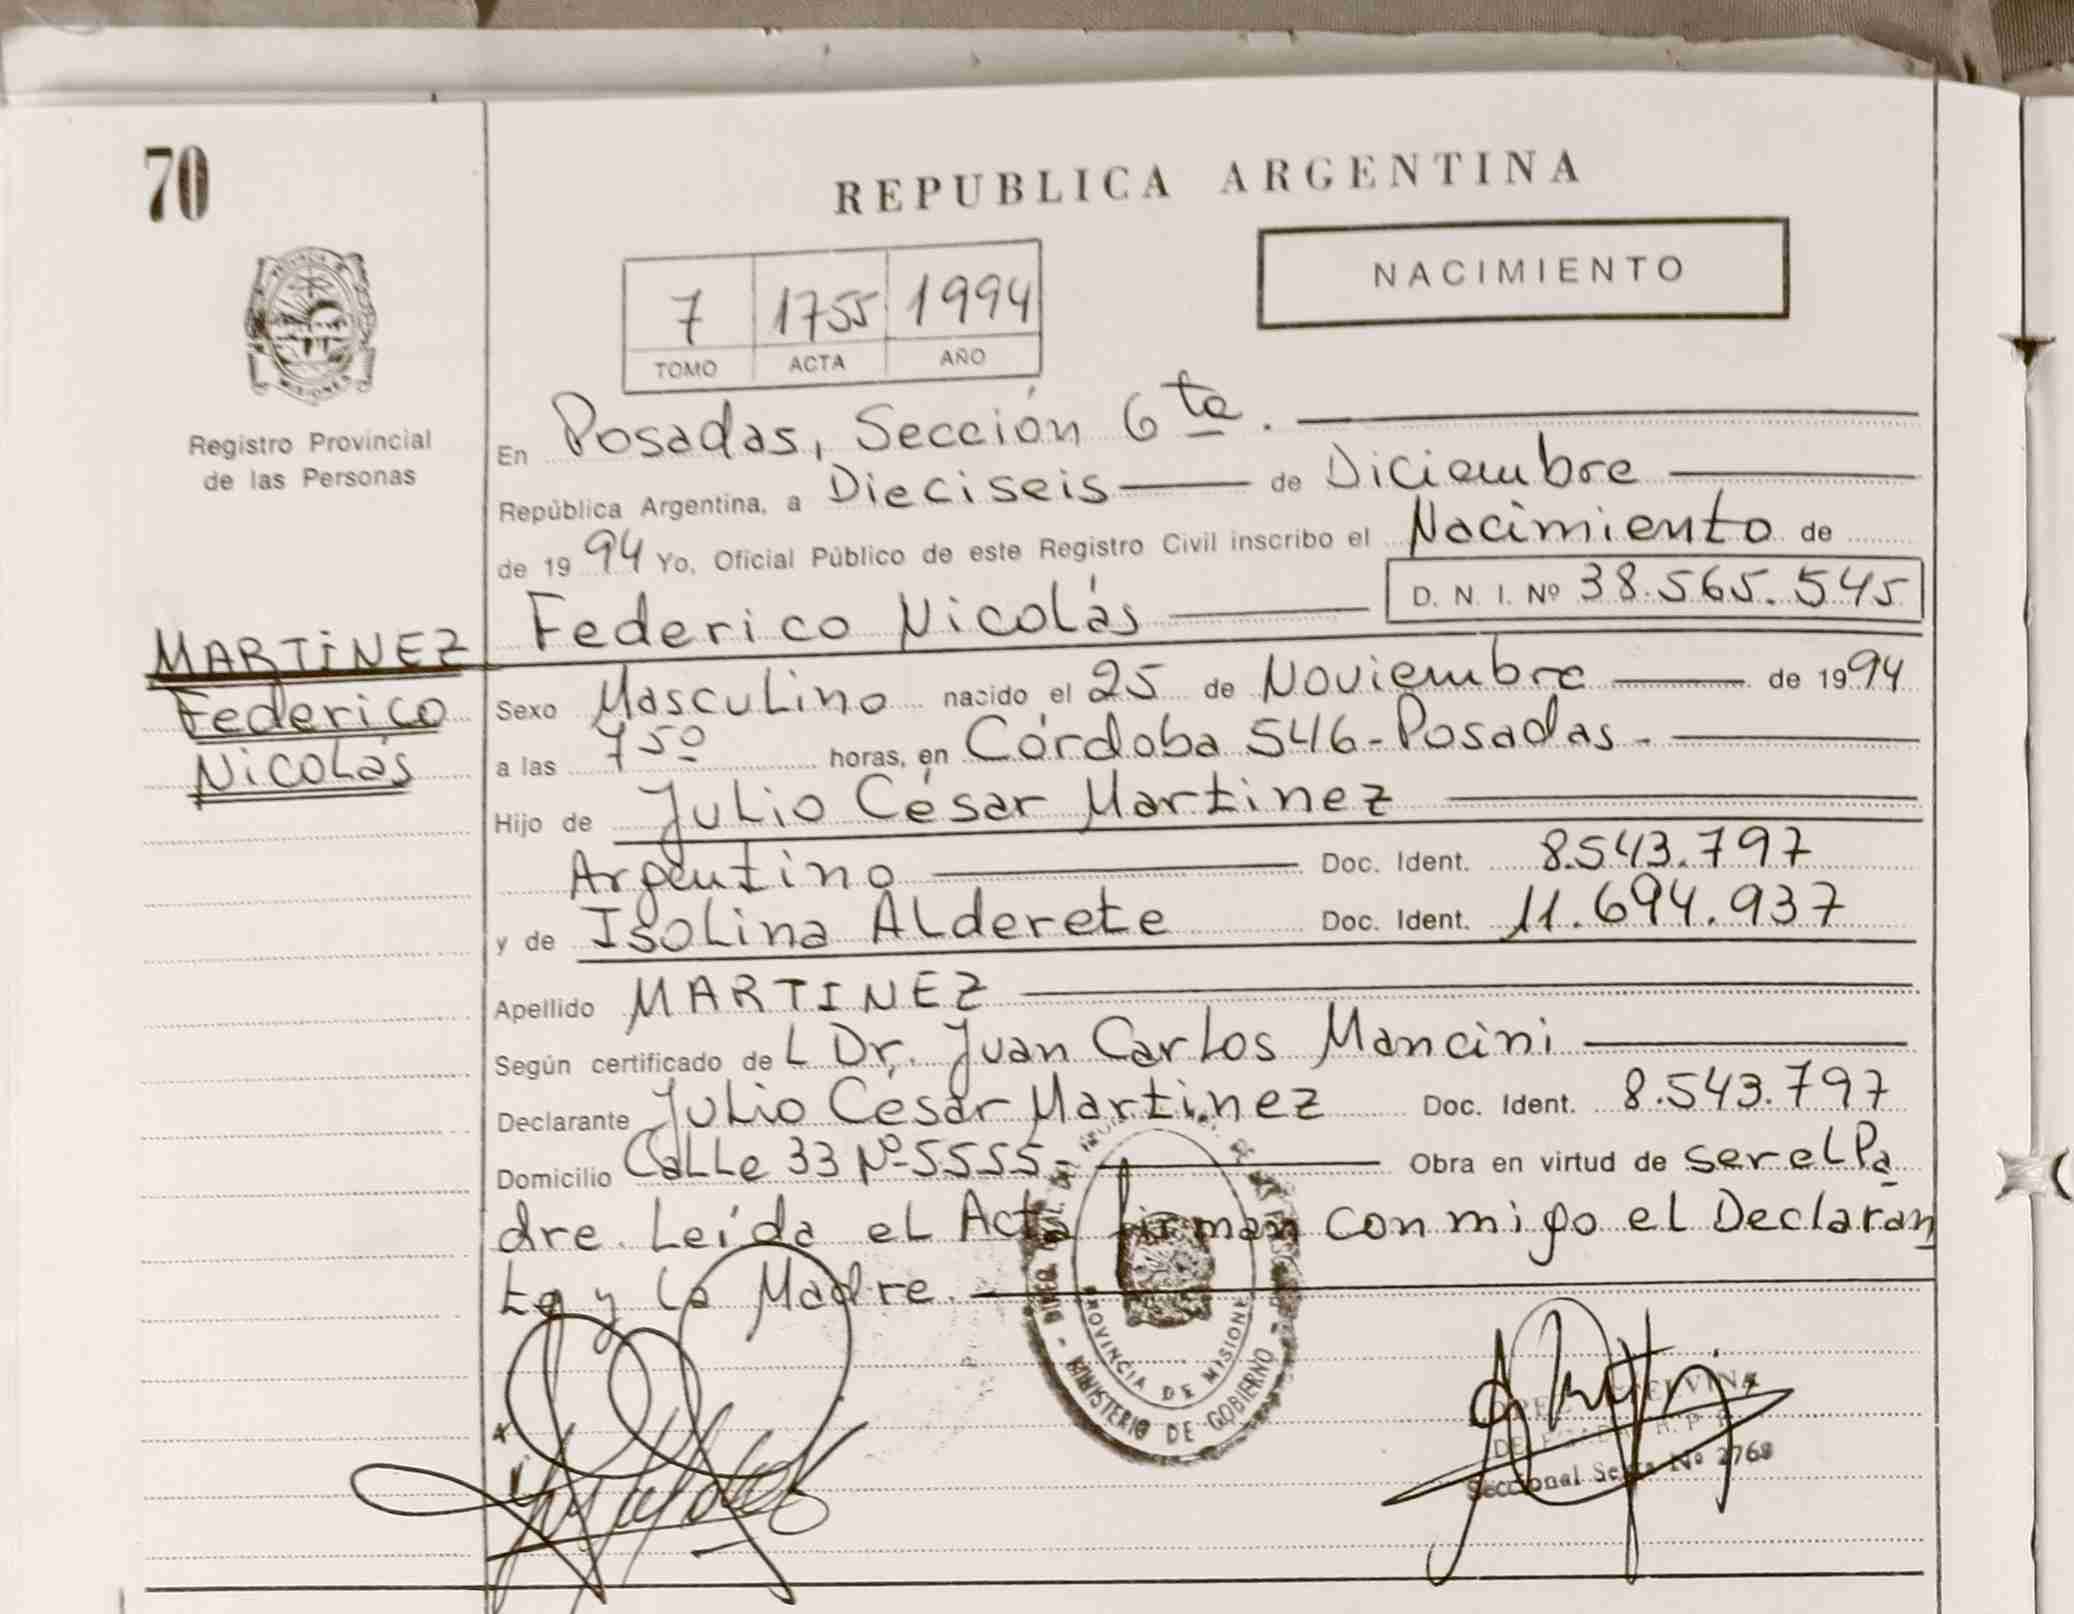 70
REPUBLICA ARGENTINA
NACIMIENTO
7 1755 1994
TOMO ACTA AÑO
PROVINCIA DE
MISIONES
Registro Provincial
de las Personas
En Posadas, Sección 6ta.
República Argentina, a Dieciseis de Diciembre
de 1994 Yo, Oficial Público de este Registro Civil inscribo el Nacimiento de
Federico Nicolás D. N. I. Nº 38.565.545
MARTiNEZ
Federico
Nicolás
Sexo Masculino nacido el 25 de Noviembre de 1994
a las 7 50 horas, en Córdoba 546-Posadas-
Hijo de Julio César Martinez
Argentino Doc. Ident. 8.543.797
y de Isolina Alderete Doc. Ident. 11.694.937
Apellido MARTINEZ
Según certificado de L Dr. Juan Carlos Mancini
Declarante Julio César Martinez Doc. Ident. 8.543.797
Domicilio Calle 33 Nº-5555- Obra en virtud de ser el Pa
dre. Leída el Acta firman conmigo el Declaran
te y la Madre.
PROVINCIA DE MISIONES
MINISTERIO DE GOBIERNO
Seccional Sexta Nº 2768